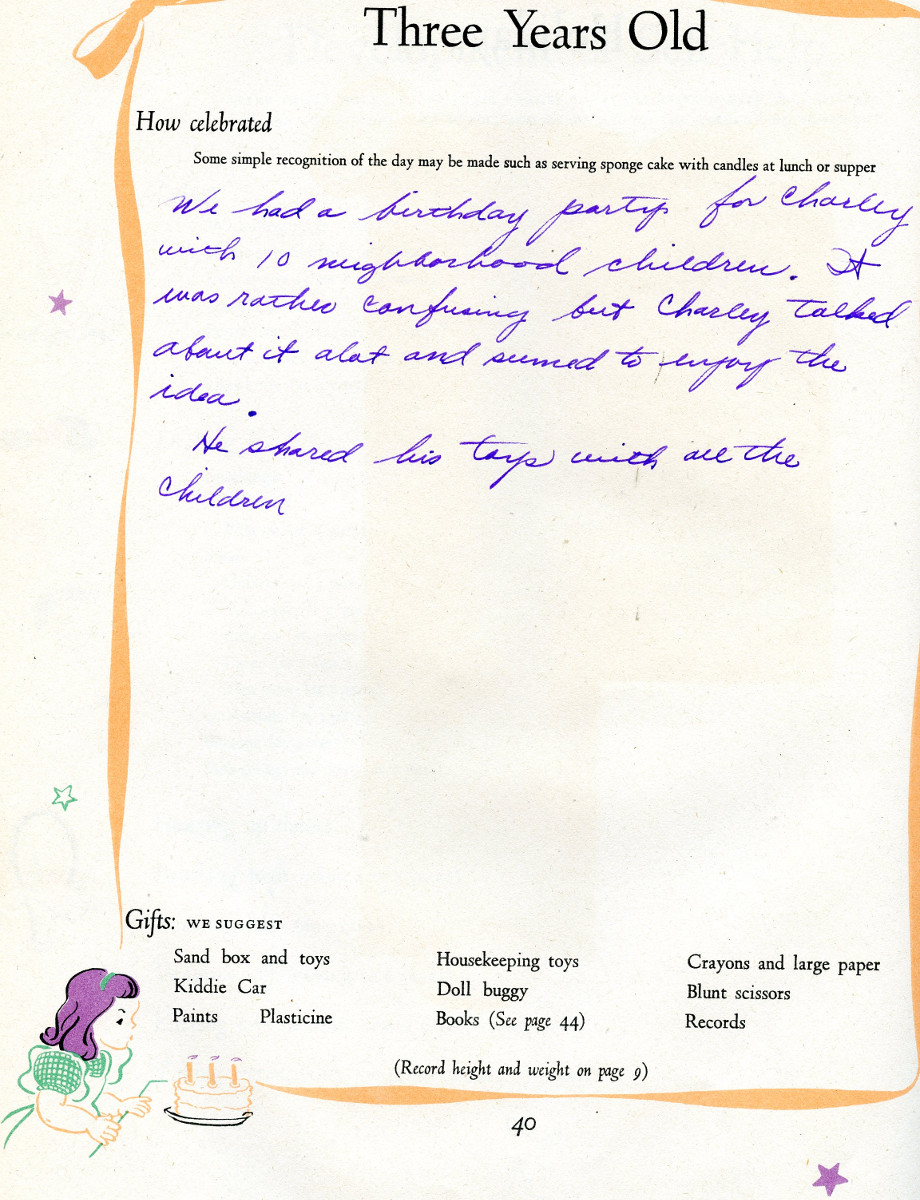 Three Years Old
How celebrated
Some simple recognition of the day may be made such as serving sponge cake with candles at lunch or supper
We had a birthday party for Charley
with 10 neighborhood children. It
was rather confusing but Charley talked
about it alot and seemed to enjoy the
idea.
He shared his toys with all the
children
Gifts: WE SUGGEST
Sand box and toys Housekeeping toys Crayons and large paper
Kiddie Car Doll buggy Blunt scissors
Paints Plasticine Books (See page 44) Records
(Record height and weight on page 9)
40